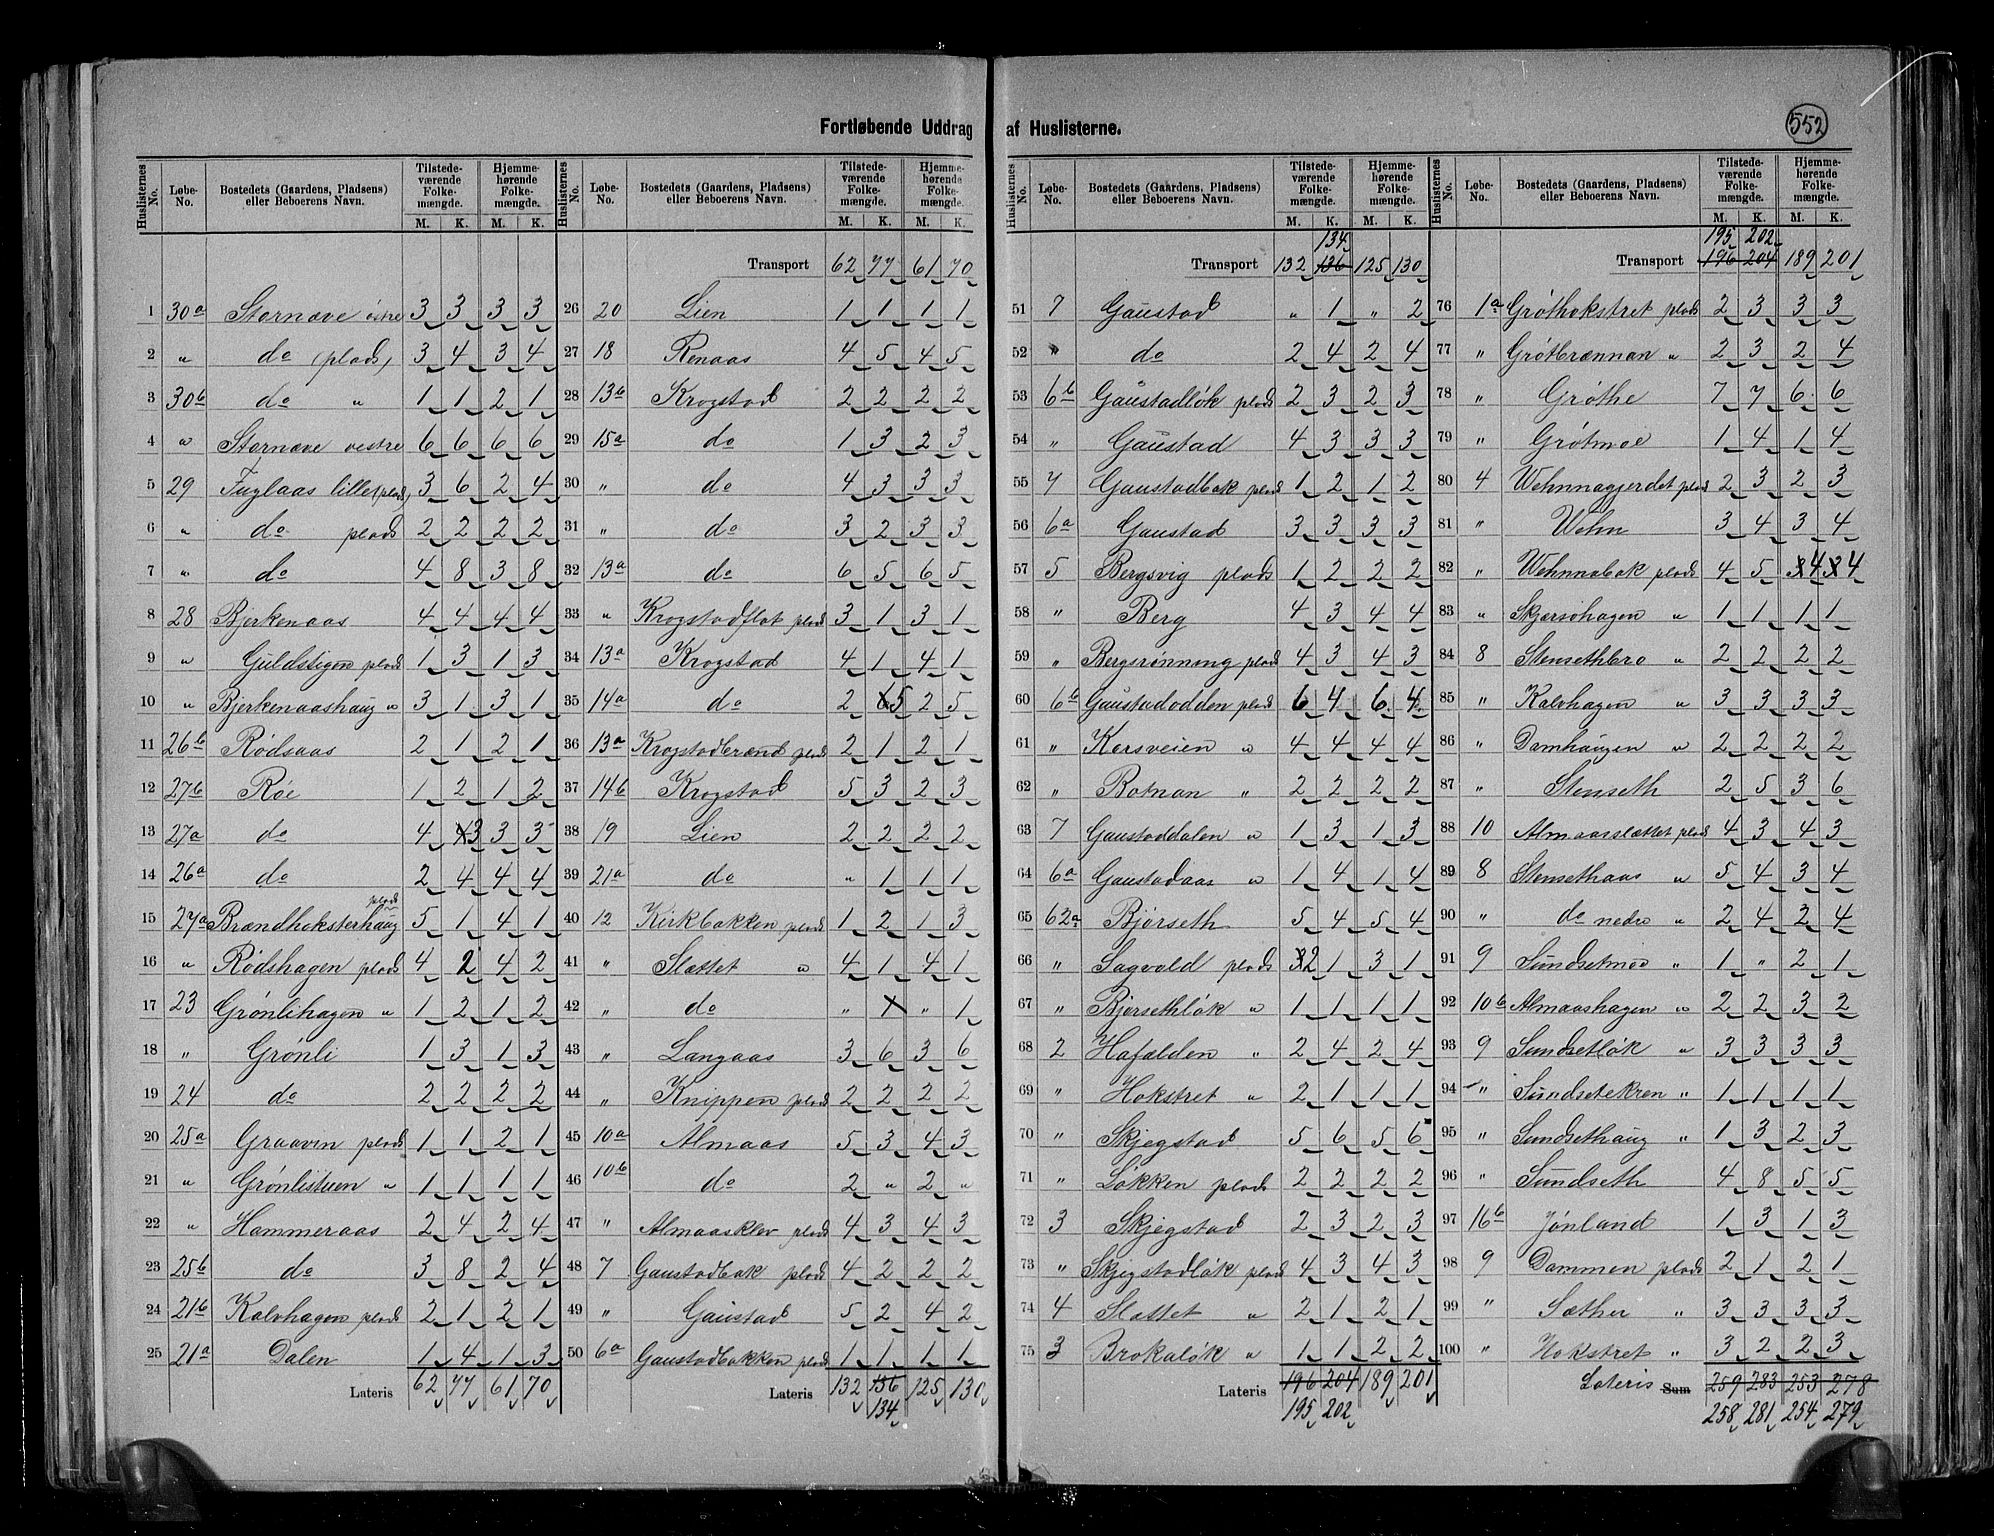 552
Fortløbende Uddrag af Huslisterne.
Huslisternes No. | Løbe-No. | Bostedets (Gaardens, Pladsens) eller Beboerens Navn. | Tilstedeværende Folkemængde. M. K. | Hjemmehørende Folkemængde. M. K.
1 30a Stornæve østre 3 3 3 3
2 " do (plads) 3 4 3 4
3 30b do " 1 1 2 1
4 " Stornæve vestre 6 6 6 6
5 29 Fuglaas lille (plads) 3 6 2 4
6 " do plads 2 2 2 2
7 " do 4 8 3 8
8 28 Bjerkenaas 4 4 4 4
9 " Guldstigen plads 1 3 1 3
10 " Bjerkenaashaug " 3 1 3 1
11 26b Rødsaas 2 1 2 1
12 27b Røe 1 2 1 2
13 27a do 4 3 3 3
14 26a do 2 4 4 4
15 27a Brændhoksterhaug plads 5 1 4 1
16 " Rødshagen plads 4 2 4 2
17 23 Grønlihagen " 1 2 1 2
18 " Grønli 1 3 1 3
19 24 do 2 2 2 2
20 25a Graaven plads 1 1 2 1
21 " Grønlistuen " 1 1 1 1
22 " Hammeraas 2 4 2 4
23 25b do 3 8 2 4
24 21b Kalvhagen plads 2 1 2 1
25 21a Dalen 1 4 1 3
Lateris 62 77 61 70
Huslisternes No. | Løbe-No. | Bostedets (Gaardens, Pladsens) eller Beboerens Navn. | Tilstedeværende Folkemængde. M. K. | Hjemmehørende Folkemængde. M. K.
Transport 62 77 61 70
26 20 Lien 1 1 1 1
27 18 Renaas 4 5 4 5
28 13b Krogstad 2 2 2 2
29 15a do 1 3 2 3
30 " do 4 3 3 3
31 " do 3 2 3 3
32 13a do 6 5 6 5
33 " Krogstadflat plads 3 1 3 1
34 13a Krogstad 4 1 4 1
35 14a do 2 6 5 2 5
36 13a Krogstadbrænd plads 2 1 2 1
37 14b Krogstad 5 3 2 3
38 19 Lien 2 2 2 2
39 21a do " 1 1 1
40 12 Kirkbakken plads 1 2 1 3
41 " Slættet " 4 1 4 1
42 " do " " 1
43 " Langaas 3 6 3 6
44 " Knippen plads 2 2 2 2
45 10a Almaas 5 3 4 3
46 10b do 2 " 2 "
47 " Almaasklev plads 4 3 4 3
48 7 Gaustadbak plads 4 2 2 2
49 " Gaustad 5 2 4 2
50 6a Gaustadbakken plads 1 1 1 1
Lateris 132 136 125 130
134
Huslisternes No. | Løbe-No. | Bostedets (Gaardens, Pladsens) eller Beboerens Navn. | Tilstedeværende Folkemængde. M. K. | Hjemmehørende Folkemængde. M. K.
134
Transport 132 136 125 130
51 7 Gaustad " 1 " 2
52 " do 2 4 2 4
53 6b Gaustadløk plads 2 3 2 3
54 " Gaustad 4 3 3 3
55 7 Gaustadbak plads 1 2 1 2
56 6a Gaustad 3 3 3 3
57 5 Bergsvig plads 1 2 2 2
58 " Berg 4 3 4 4
59 " Bergsrønning plads 4 3 4 3
60 6b Gaustadodden plads 6 4 6 4
61 " Korsveien " 4 4 4 4
62 " Botnan " 2 2 2 2
63 7 Gaustaddalen " 1 3 1 3
64 6a Gaustadaas " 1 4 1 4
65 62a Bjørseth 5 4 5 4
66 " Sagvold plads 3 2 1 3 1
67 " Bjørsethløk " 1 1 1 1
68 2 Hafælden " 2 4 2 4
69 " Hokstret " 2 1 1 1
70 " Skjegstad 5 6 5 6
71 " Løkken plads 2 2 2 2
72 3 Skjegstad 2 3 2 3
73 " Skjegstadløk plads 4 3 4 3
74 4 Slættet " 2 1 2 1
75 3 Brokaløk " 1 1 2 2
Lateris 196 204 189 201
195 202
Huslisternes No. | Løbe-No. | Bostedets (Gaardens, Pladsens) eller Beboerens Navn. | Tilstedeværende Folkemængde. M. K. | Hjemmehørende Folkemængde. M. K.
195 202
Transport 196 204 189 201
76 1a Grøthokstret plads 2 3 3 3
77 " Grøtbrænnan " 2 3 2 4
78 " Grøthe 7 7 6 6
79 " Grøtmoe 1 4 1 4
80 4 Wehnnagjerdet plads 2 3 2 3
81 " Wehn 3 4 3 4
82 " Wehnnabak plads 4 5 4 4
83 " Skjørsøhagen " 1 1 1 1
84 8 Stensethbro " 2 2 2 2
85 " Kalvhagen " 3 3 3 3
86 " Damhaugen " 2 2 2 2
87 " Stenseth 2 5 3 6
88 10 Almaasslættet plads 4 3 4 3
89 8 Stensethaas " 5 4 3 4
90 " do nedre " 2 4 2 4
91 9 Sundsetmoe " 1 " 2 1
92 10b Almaashagen " 2 2 3 2
93 9 Sundsetløk " 3 3 3 3
94 " Sundsetekren " 1 1 1 1
95 " Sundsethaug " 1 3 2 3
96 " Sundseth 4 8 5 5
97 16b Jønland 1 3 1 3
98 9 Dammen plads 2 1 2 1
99 " Sæther " 3 3 3 3
100 " Hokstret " 3 2 2 3
Lateris Sum 259 283 253 278
258 281 254 279